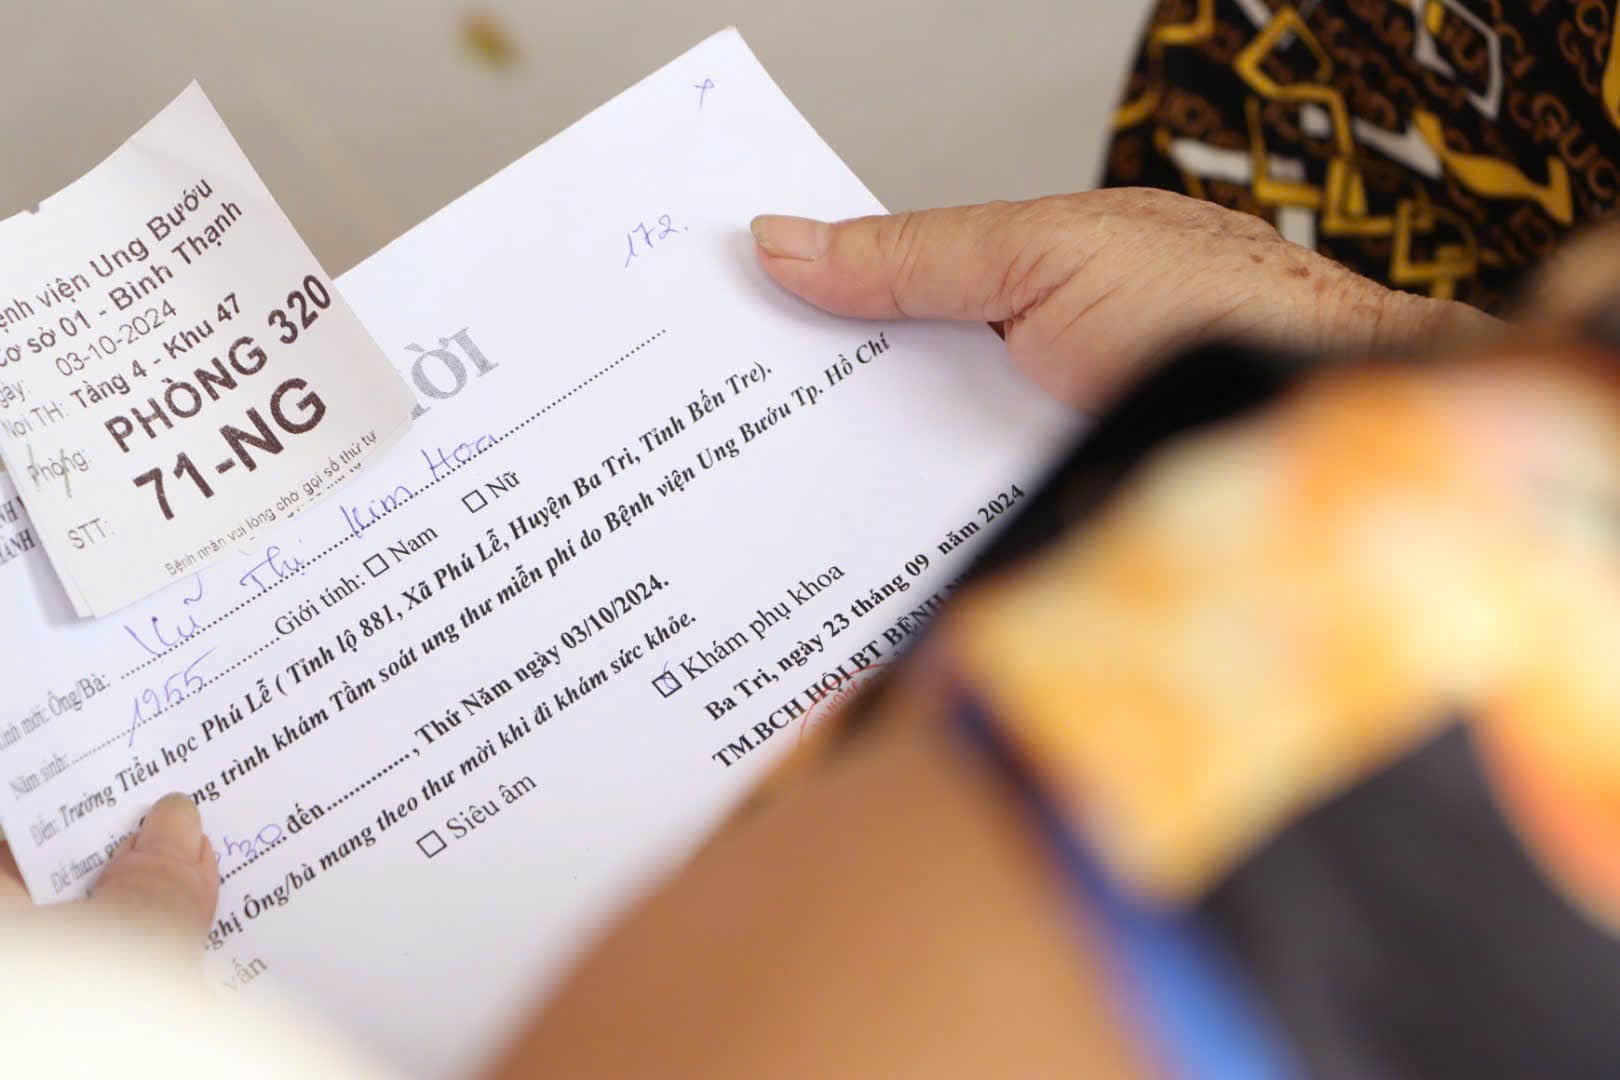 Bệnh viện Ung Bướu
Cơ sở 01 - Bình Thạnh
Ngày: 03-10-2024
Nơi TH: Tầng 4 - Khu 47
Phòng: PHÒNG 320
STT: 71-NG
Bệnh nhân vui lòng chờ gọi số thứ tự
x
172.
ỜI
Kính mời: Ông/Bà: Vũ Thị Kim Hoa
Năm sinh: 1955 Giới tính: □ Nam □ Nữ
Đến: Trường Tiểu học Phú Lễ ( Tỉnh lộ 881, Xã Phú Lễ, Huyện Ba Tri, Tỉnh Bến Tre).
Để tham gia trình khám Tầm soát ung thư miễn phí do Bệnh viện Ung Bướu Tp. Hồ Chí
h30 đến, Thứ Năm ngày 03/10/2024.
nghị Ông/bà mang theo thư mời khi đi khám sức khỏe.
vấn □ Siêu âm ☑ Khám phụ khoa
Ba Tri, ngày 23 tháng 09 năm 2024
TM.BCH HỘI BT BỆNH